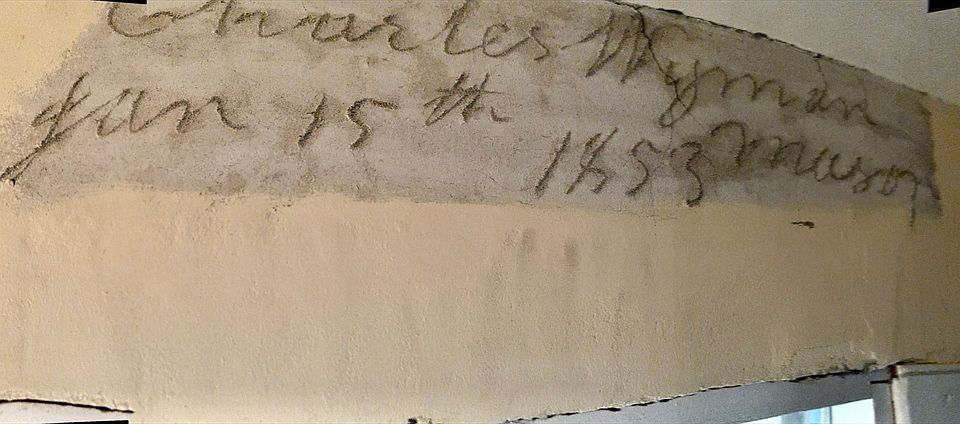 Charles Wyman
Jan 15th 1853 Mason